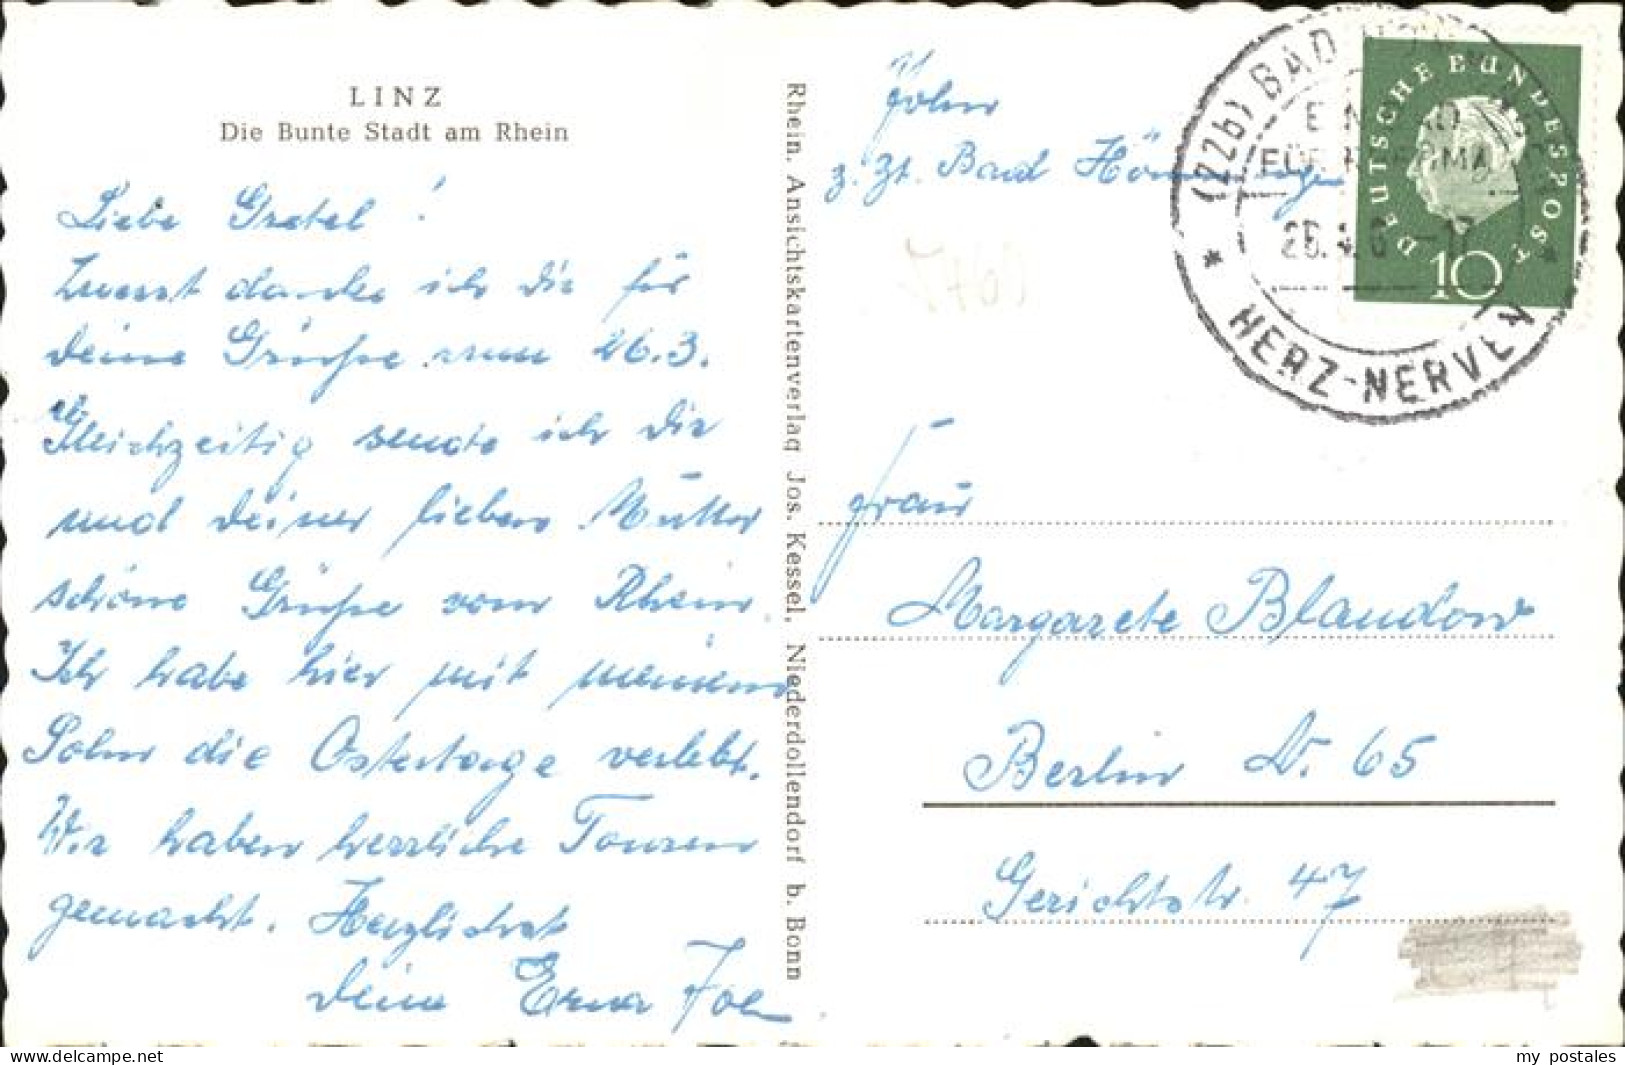 LINZ
Die Bunte Stadt am Rhein
Liebe Gretel!
Zuerst danke ich Dir für
deine Grüße zum 26.3.
Gleichzeitig sende ich Dir
und deiner lieben Mutter
schöne Grüße vom Rhein.
Ich habe hier mit meinem
Sohn die Ostertage verlebt.
Wir haben herrliche Touren
gemacht. Herzlichst
deine Erna John
Rhein. Ansichtskartenverlag Jos. Kessel, Niederdollendorf b. Bonn
John
z. Zt. Bad Hönningen
(22b) BAD
HERZ-NERVEN
DEUTSCHE BUNDESPOST
10
Frau
Margarete Blaudow
Berlin N. 65
Gerichtstr. 47
delcampe.net
my postales